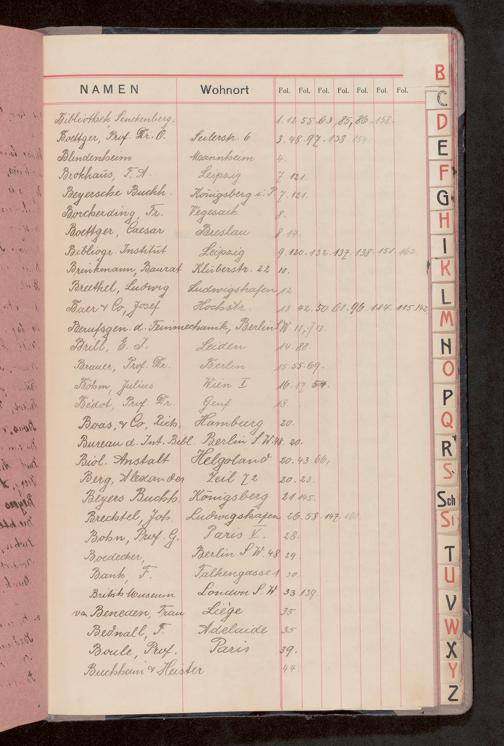 NAMEN Wohnort Fol. Fol. Fol. Fol. Fol. Fol. Fol.
Bibliothek Senckenberg. 1. 12. 55. 63. 85, 86.
Boettger, Prof. Dr. O. Seilerstr. 6 3. 48. 97. 133
Blindenheim Mannheim 4.
Brokhaus, F. A. Leipzig 7. 121.
Beyersche Buchh. Königsberg i. P. 7. 121.
Borcherding, Fr. Vegesack 8.
Boettger, Caesar Breslau 8
Bibliogr. Institut Leipzig 9. 120. 132. 137. 138. 151.
Brinkmann, Baurat Klüberstr. 22 10.
Breethel, Ludwig Ludwigshafen 12
Baer & Co, Josef Hochstr. 13 42. 50 61. 96. 114. 115
Berufsgen. d. Feinmechanik, Berlin S.W. 11,
Brill, E. J. Leiden 14. 88.
Brauer, Prof. Dr. Berlin 15. 55. 69.
Böhm, Julius Wien I 16.
Bedot, Prof. Dr. Genf 18.
Boas, & Co, Rich. Hamburg 20.
Bureau d. Int. Bibl. Berlin S.W. 48 20.
Biol. Anstalt Helgoland 20. 43
Berg, Alexander Zeil 72 20. 23.
Beyers Buchh. Königsberg 21 145.
Brechtel, Joh. Ludwigshafen 26. 58. 147.
Bohn, Prof. G. Paris V. 28.
Boedecker, Berlin S.W. 48 29.
Bank, F. Falkengasse 1 30.
British Museum London S.W 33 139.
van Beneden, Frau Liége 35
Bednall, F. Adelaide 35
Boule, Prof. Paris 39.
Buchheim & Heister 44
B
C
D
E
F
G
H
I
K
L
M
N
O
P
Q
R
S
Sch
St
T
U
V
W
X
Y
Z